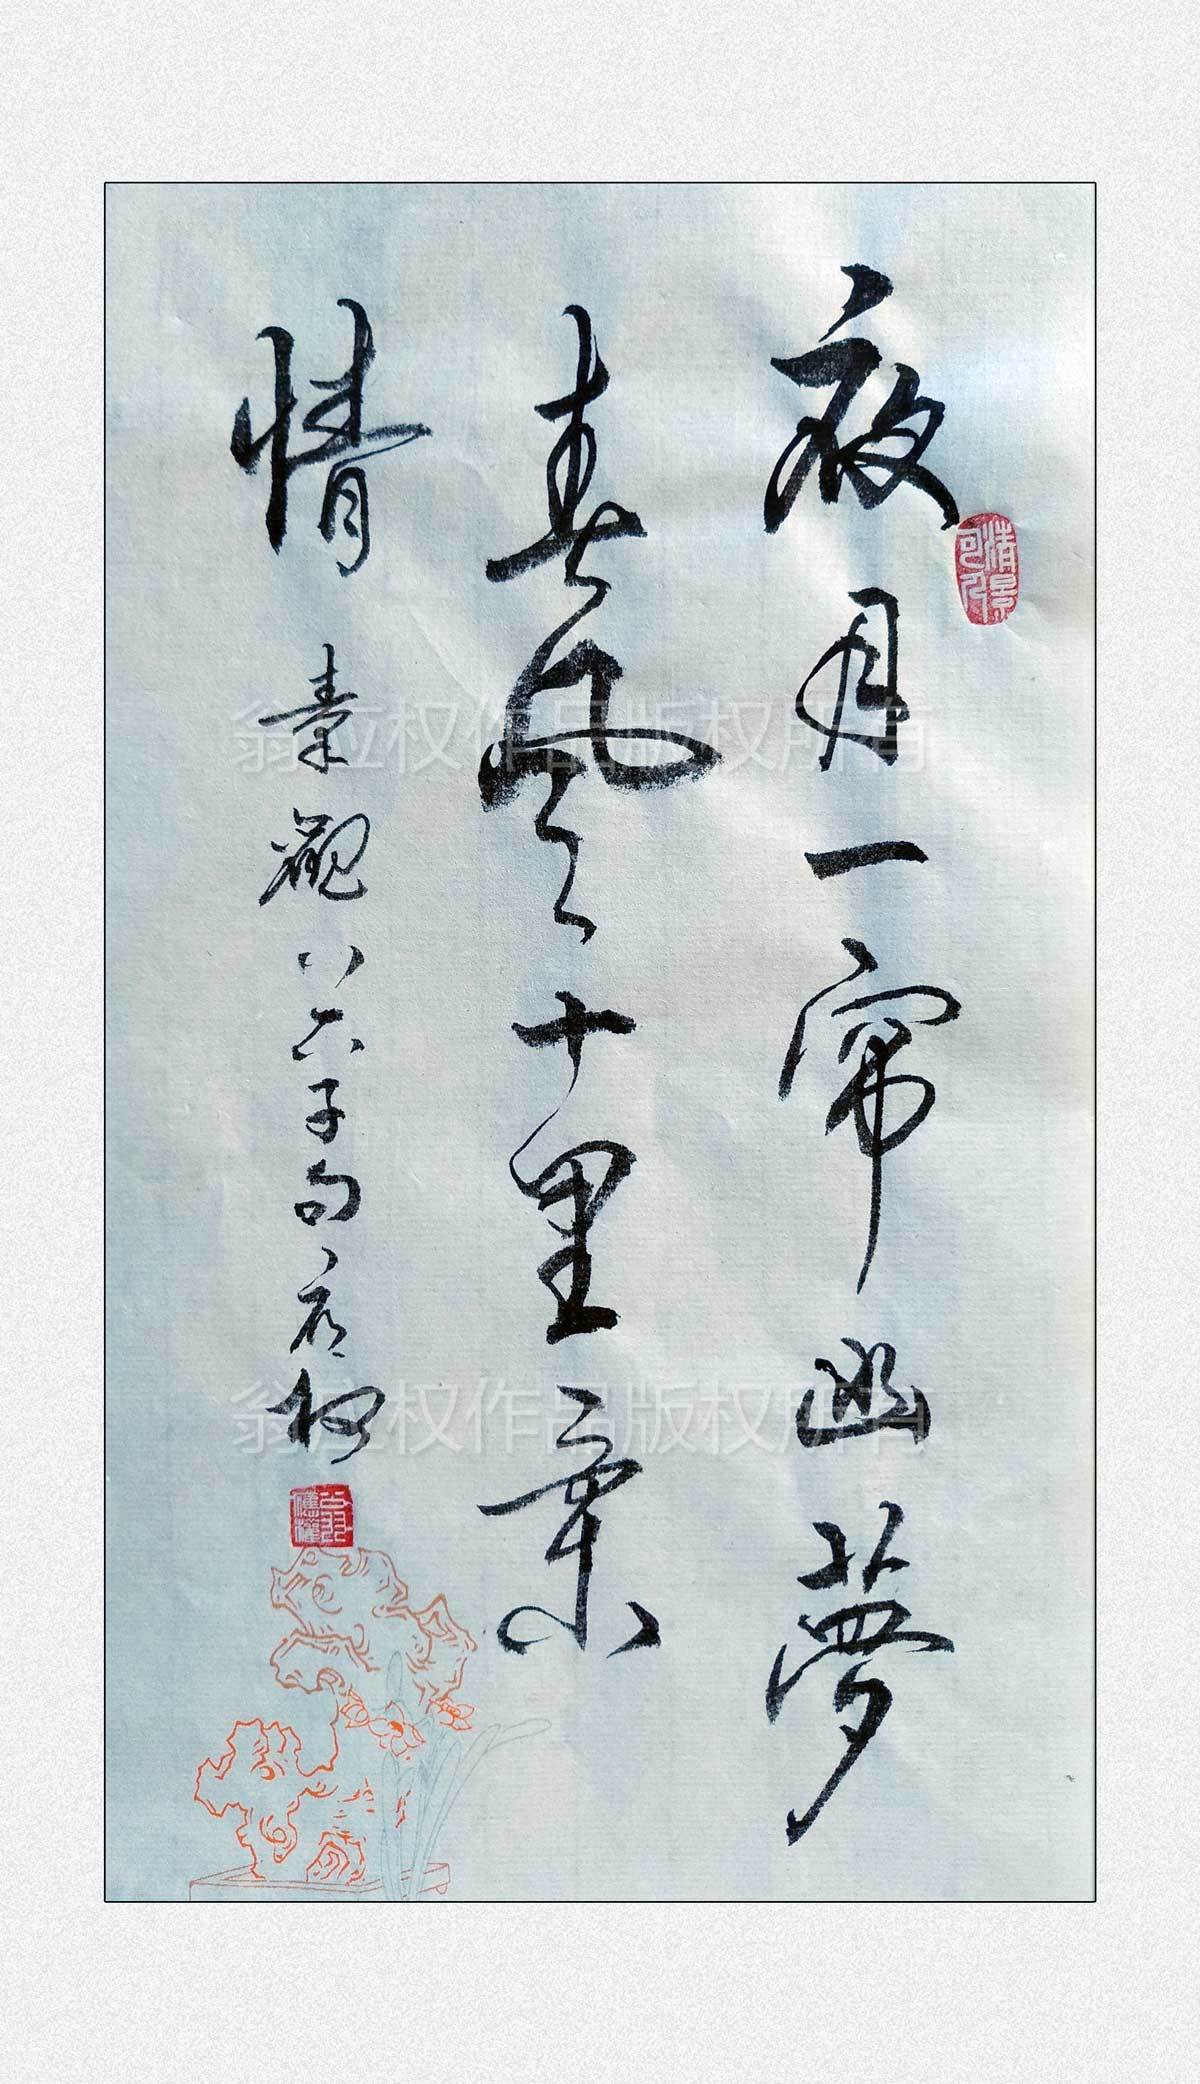 夜月一帘幽夢
春風十里柔
情 秦觀八六子句 应权
翁应权作品版权所有
翁应权作品版权所有
翁應權